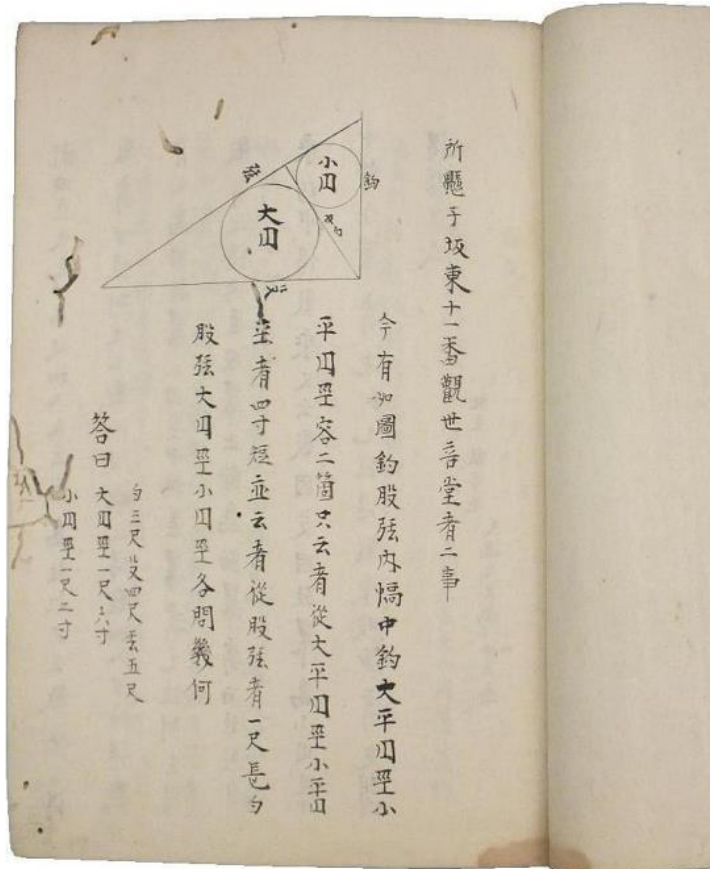 所懸于坂東十一番觀世音堂者二事
今有如圖鈎股弦内
中鈎大平円径小
平円径容二箇只云者從大平円径小平円
径者四寸短並云者從股弦者一尺長勾
股弦大円径小円径各問幾何
答曰
勾三尺殳四尺玄五尺
大円径一尺六寸
小円径一尺二寸
弦
小円
鈎
大円
中勾
殳